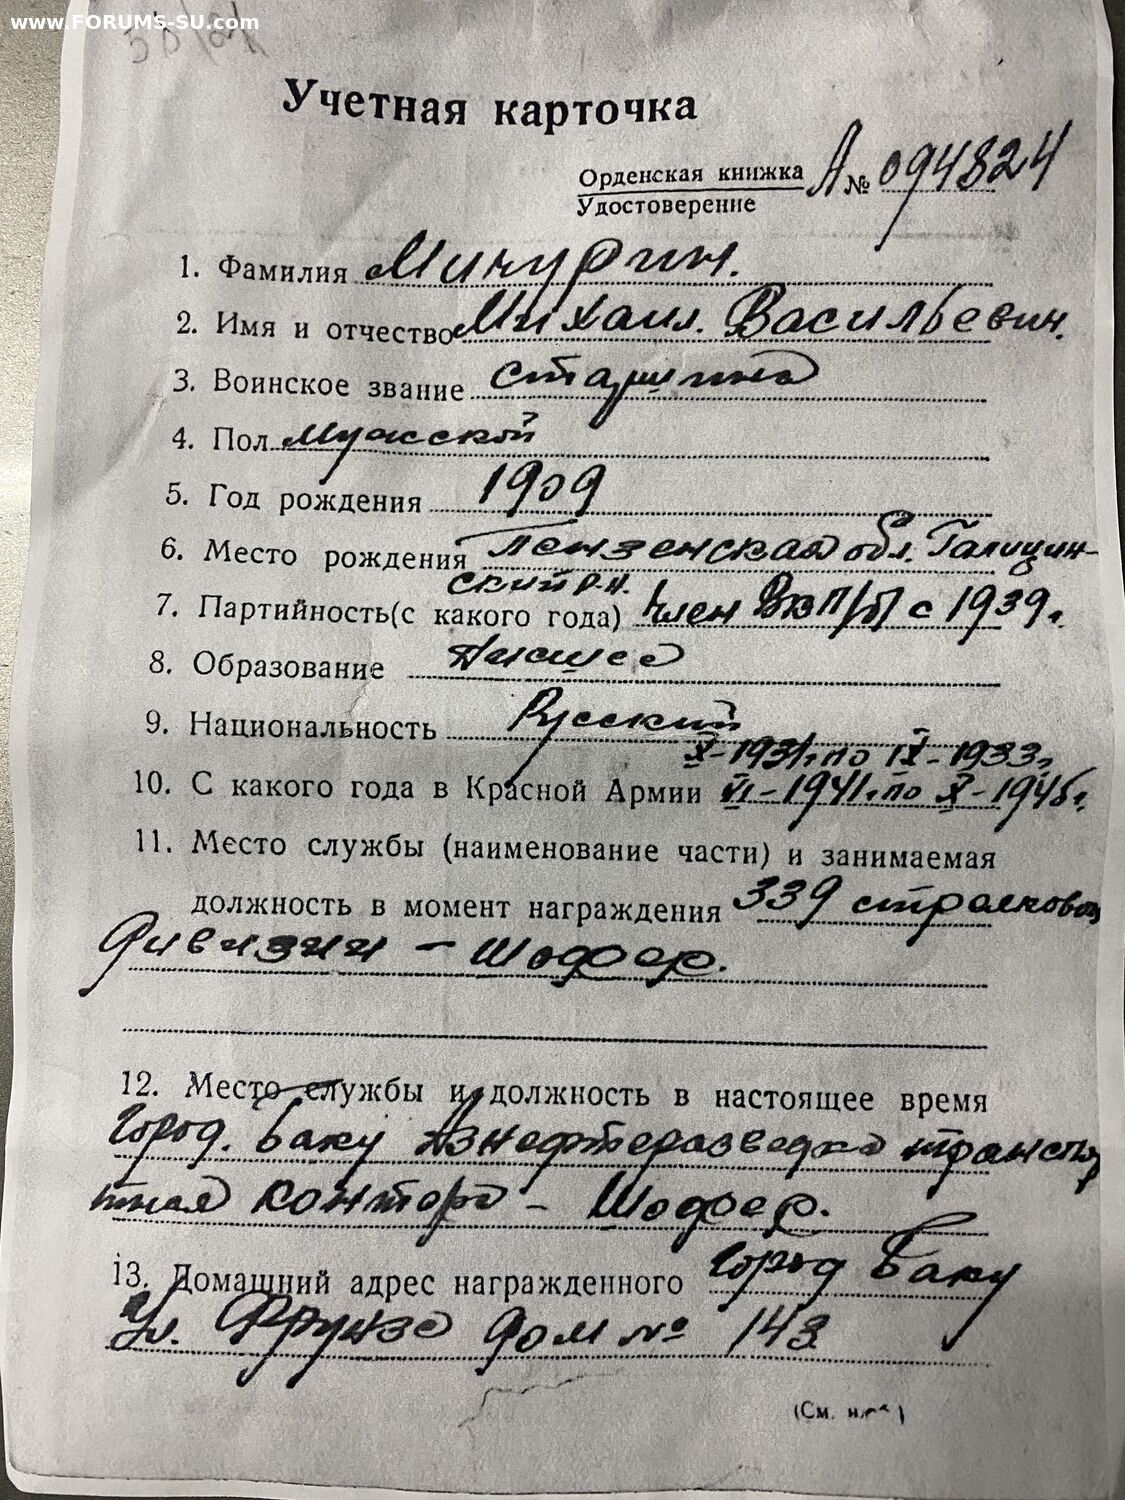 www.FORUMS-SU.com
Учетная карточка
Орденская книжка А № 094824
Удостоверение
1. Фамилия Мичурин.
2. Имя и отчество Михаил. Васильевич.
3. Воинское звание старшина
4. Пол мужской
5. Год рождения 1909
6. Место рождения Пензенская обл. Галицин-
ский р.н.
7. Партийность(с какого года) Член ВКП/б/ с 1939г.
8. Образование Низшее
9. Национальность Русский
X-1931г. по IX-1933г.
10. С какого года в Красной Армии VI-1941г. по X-1945г.
11. Место службы (наименование части) и занимаемая
должность в момент награждения 339 стрелковой
дивизии - шофер.
12. Место службы и должность в настоящее время
город. Баку Азнефтеразведка транспор
тная контора - Шофер.
13. Домашний адрес награжденного город Баку
Ул. Фрунзе дом № 143
(См. на